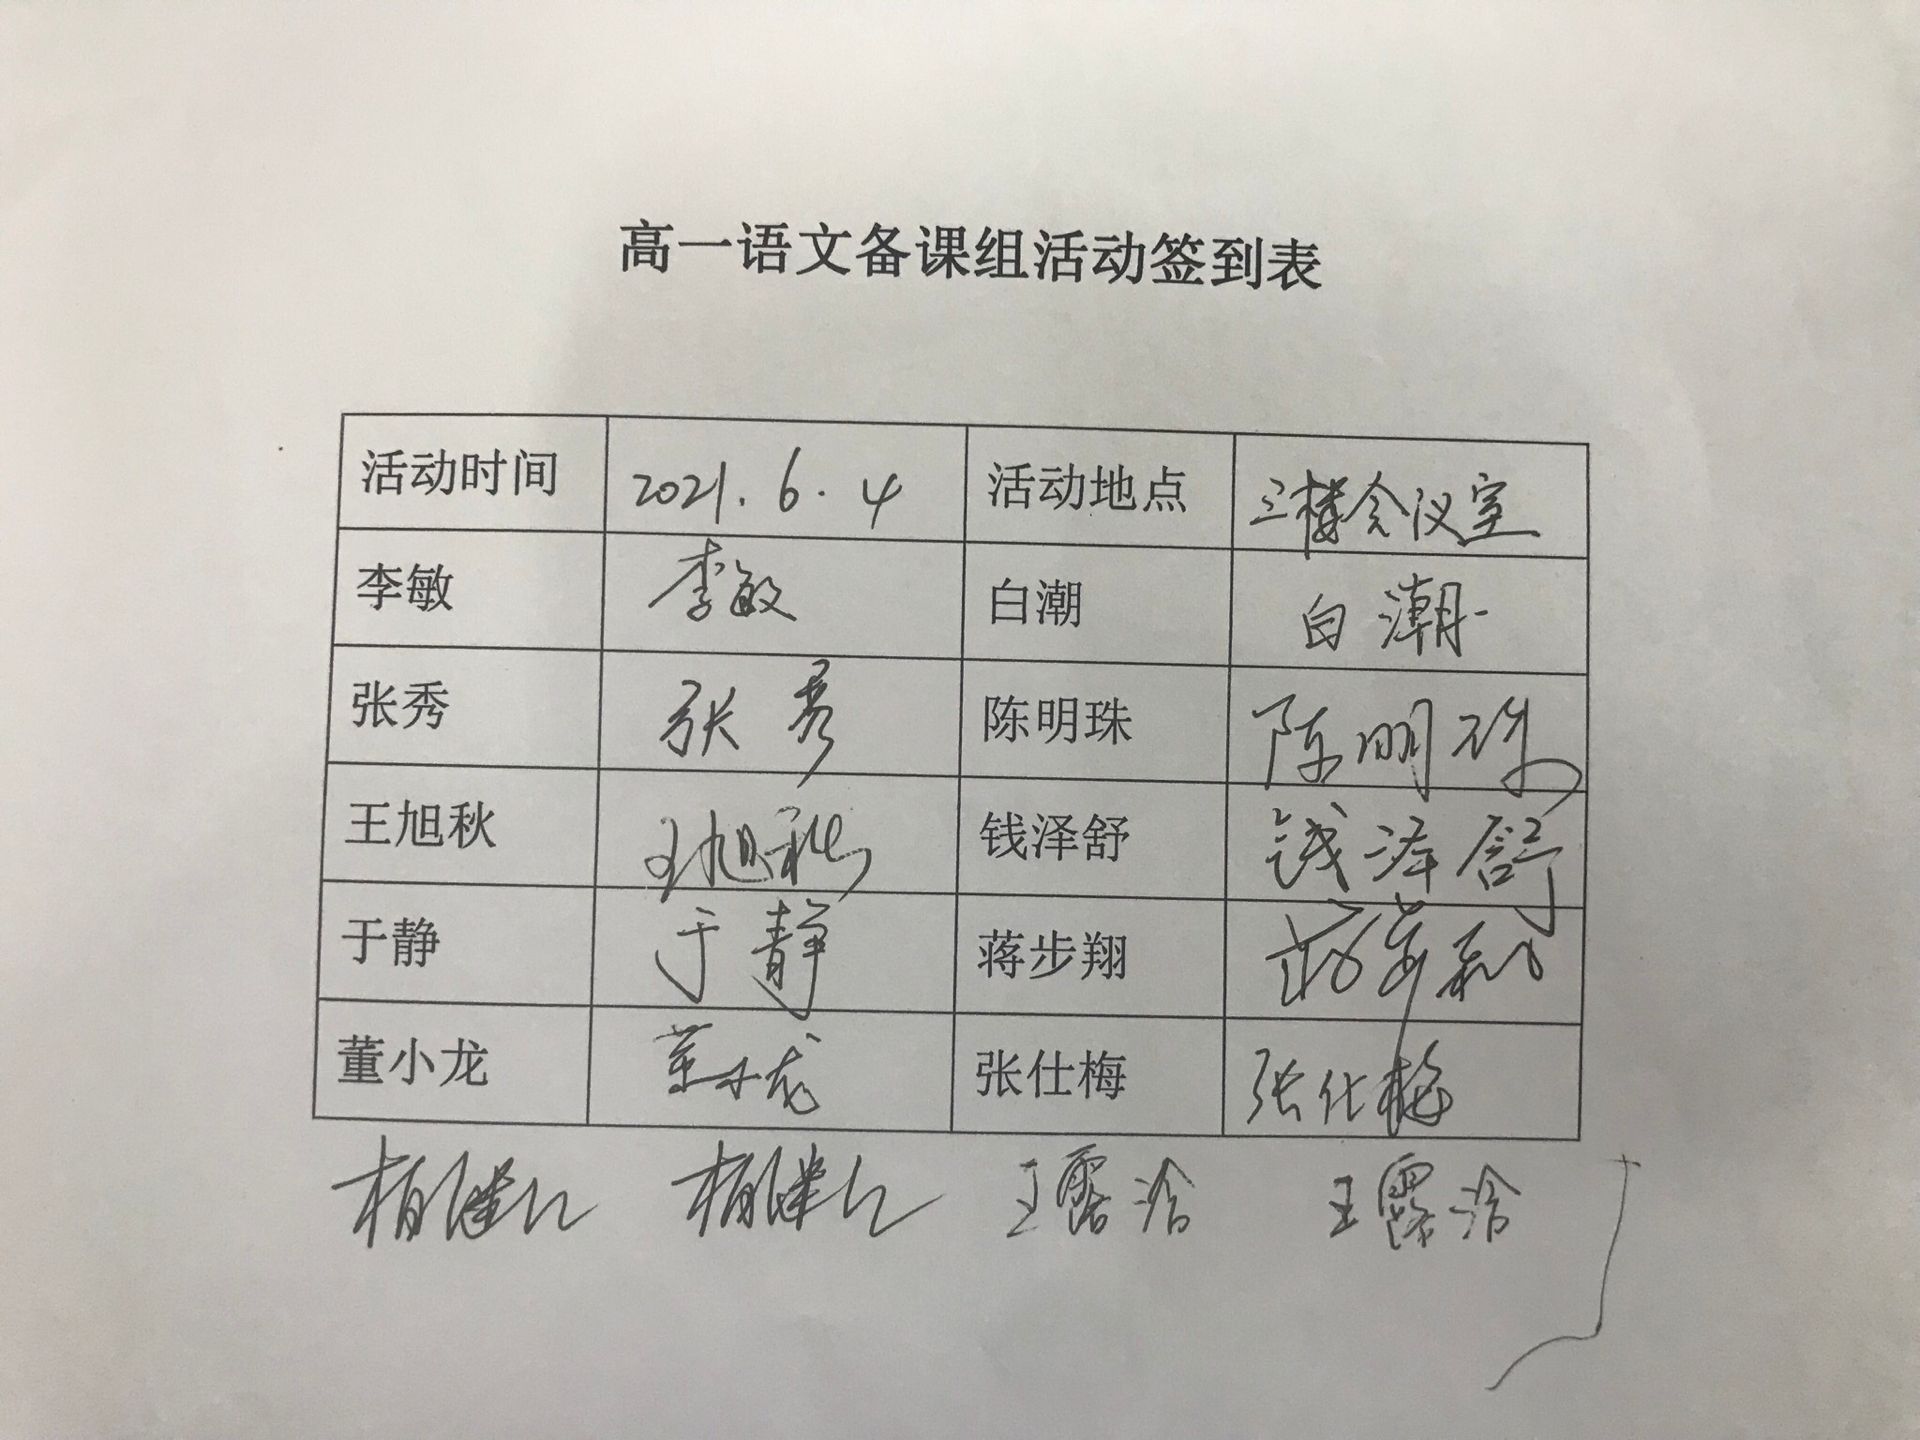 高一语文备课组活动签到表
活动时间 2021.6.4 活动地点 三楼会议室
李敏 李敏 白潮 白潮
张秀 张秀 陈明珠 陈明珠
王旭秋 王旭秋 钱泽舒 钱泽舒
于静 于静 蒋步翔 蒋步翔
董小龙 董小龙 张仕梅 张仕梅
王露洽 王露洽